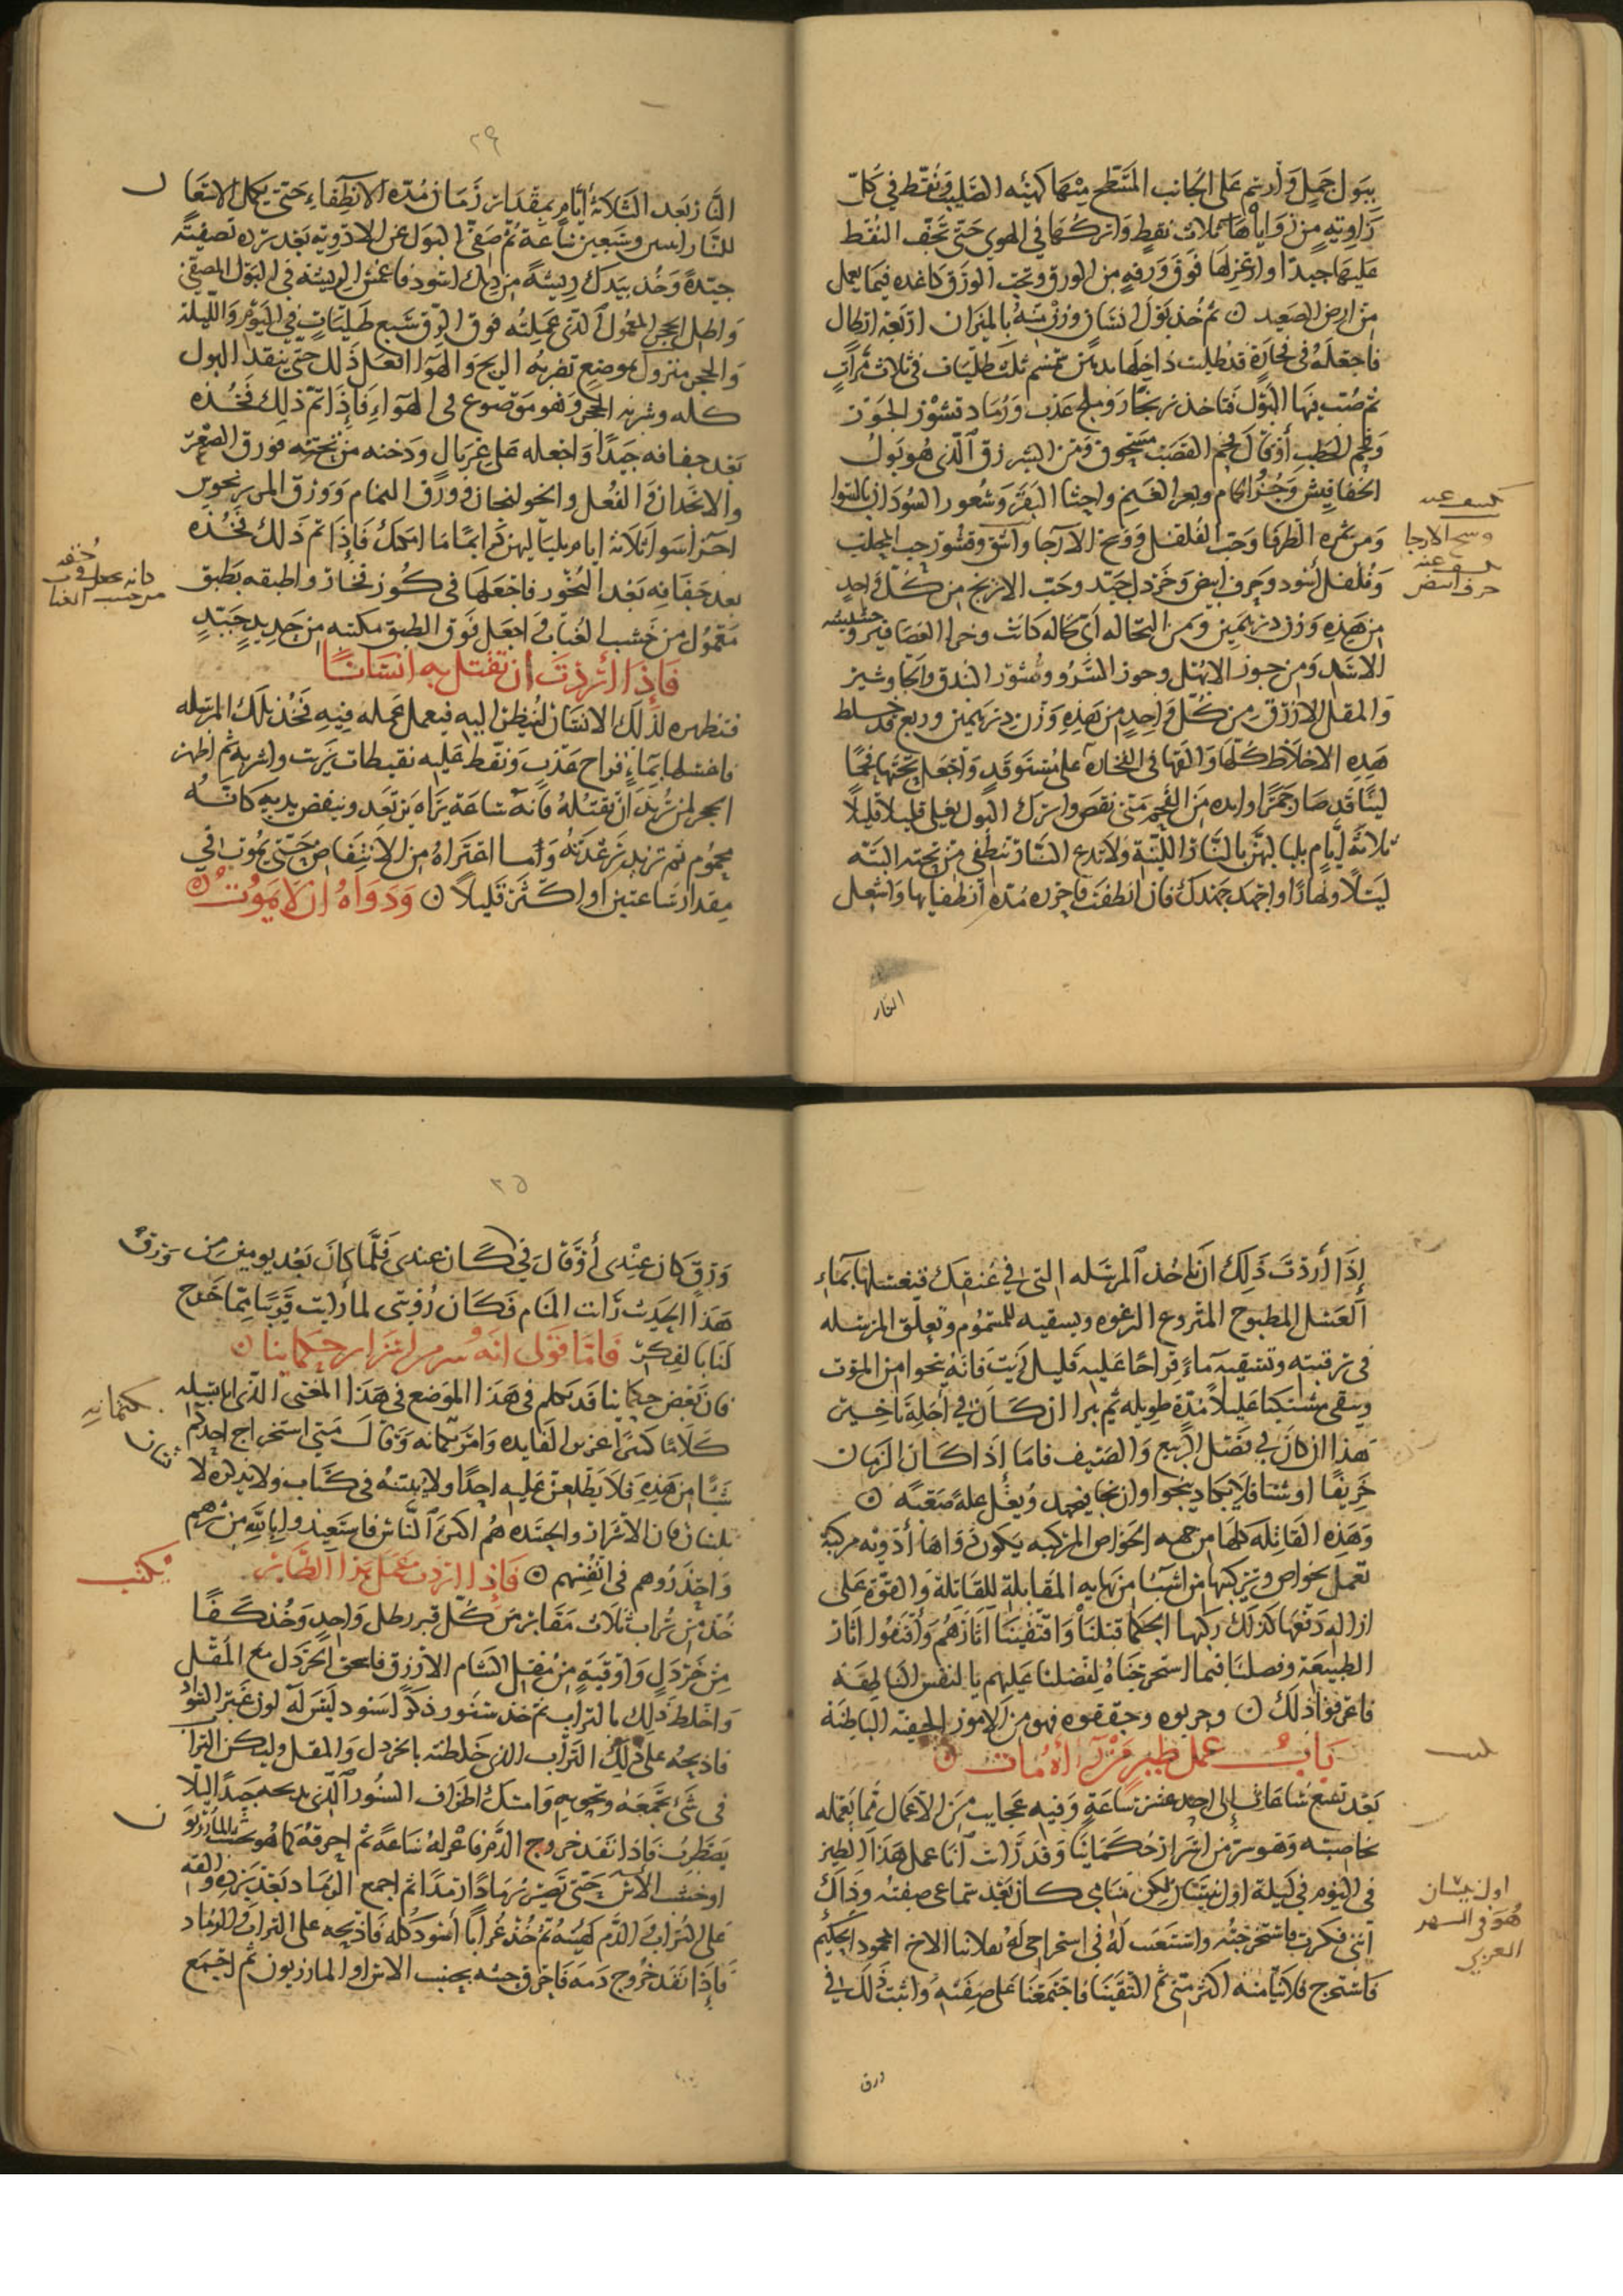 ببول جمل وارسم على الجانب المسطح منها كهيئه الصليب ونقط في كل
زاويةٍ من زواياها ثلاث نقطٍ واتركها في الهوى حتى تجف النقط
عليها جيدًا واو فوق ورقه من الورق وتحت الورق كاغده فيما يعمل
من ارض الصعيد ن ثم خذ بول انسان وزن بالميزان اربعة ارطال
فاجعله في فخارة قد طليت داخلها بدهن سمسم ثلث طليات في ثلاث مراتٍ
ثم صب فيها البول فتاخذ زنجار وملح عذب ورماد قشور الجوز
وفحم الحطب أوقال فحم القصب مسحوق ومن الشيرزق الذي هو بول
الخفافيش وخرؤ الحمام وبعر الغنم واخثا البقر وشعور السودان بالسوا
ومن ثمره الطرفا وحب الفلفل ووسخ الآرجا وآشق وقشور حب المحلب
وفلفل أسود وحرف ابيض وخردل جيد وحب الاترج من كل واحدٍ
من هذهِ وزن درهمين ومن النخاله أي نخاله كانت وخرا العصافير وحشيشه
الاسد ومن جوز الابهل وجوز السرو وقشور البندق وانجاوشير
والمقل الازرق من كل واحدٍ من هذهِ وزن درهمين وربع قد خلط
هذه الاخلاط كلها والقها في الفخاره على مستوقد واجعل تحتها فحمًا
لينًا قد صار جمرًا وزده من الفحم متى نقص واترك البول يغلي قليلا قليلاً
ثلاثه أيامٍ بلياليهن بالنار اللينة ولا تدع النار تنطفي من تحته البته
ليلاً ونهارًا واجهد جهدك فان انطفت فاحزر مدة انطفيابها واشعل
النار
كسف عنه
وسخ الارجا
كسف عنه
حرف ابيض
٢٩
النار بعد الثلاثة أيام بمقدار زمان مدة الانطفاء حتى يكمل الاشعا
للنار اثنين وسبعين ساعة ثم صفي البول عن الادوية بعد برده تصفيةً
جيدةً وخذ بيدك ريشةً من ديك اسود فاغمس الريشة في البول المصفى
واطل الحجر المعمول الذي عملته فوق الورق سبع طلياتٍ في اليوم والليلة
والحجر متروك بموضعٍ تضربه الريح والهوآ افعل ذلك حتى ينفد البول
كله وشربه الحجر وهو موضوع في الهوآءِ فإذا تم ذلك فخذه
بعد جفافه جيدًا واجعله على غربالٍ ودخنه من تحته بورق الصعتر
والانجدان والفعل وانخولنجان وورق النمام وورق المر
اجزا سوا ثلاثه ايام بلياليهن دايمًا ما امكنك فإذا تم ذلك فخذه
بعد جفافه بعد البخور فاجعلها في كوز فخار واطبقه بطبق
معمول من خشب العناب واجعل فوق الطبق مكبه من حديدٍ جيدٍ
فإذا أردت أن تقتل به انسانًا
فتظهره لذلك الانسان لينظر اليه فيعمل عمله فيه فخذ تلك المرسله
فاغسلها بماءٍ قراح عذبٍ ونقط عليه نقيطات زيت واشربه ثم اظهر
الحجر لمن تريد أن تقتله فانه ساعة يراه يرتعد وينفض يديه كانه
محموم ثم تزيد رعدته وأما اعتراه من الانتفاض حتى يموت في
مقدار ساعتين او اكثر قليلاً ن ودواه ان لا يموت ن
دانه يجعل في
من خشب العنا
إذا أردت ذلك ان تاخذ المرسله التي في عنقك فتغسلها بماءِ
العسل المطبوخ المنزوع الرغوه ويسقيه للمسموم وتعلق المرسله
في رقبته وتسقيه ماءً قراحًا عليه قليل زيت فانه ينجوا من الموت
ويبقى مستكينا عليلاً مدةً طويله ثم يبرا ان كان في أجله تاخير
هذا ان كان في فصل الربيع والصيف فاما إذا كان الزمان
خريفًا او شتا فلا يكاد ينجوا وان نجا فبجهد ويعل علةً صعبةً ن
وهذه القاتله كلها من جهه الخواص المركبه يكون دواها أدويه مركبة
تعمل بخواص وتركيبها من اشيا من نهايه المقابلة للقاتلة والقوة على
ازاله دفعها كذلك ركبها الحكما قبلنا واقتفينا آثارهم وأقتفوا اثار
الطبيعة وفضلنا فيما استخرجناه لفضلنا عليهم بالنفس الناطقة
فاعرفوا ذلك ن وجربوه وحققوه فهو من الامور الخفيه الباطنة
باب عمل طير الأمان ن
بعد تسع ساعات إلى احد عشر ساعةٍ وفيه عجايب من الاعمال مما يعمله
بخاصيته وهو سر من اسرار حكماينا وقد رأت أنا عمل هذا الطير
في اليوم في ليلة اول نيسان لكن منامي كان بعد سماعي صفته وذاك
أنني فكرت فاستخرجته واستعنت له في استخراجي له بفلانيا الاخ المحمود الحكيم
فاستخرج فلانيا منه اكثر مني ثم التقينا فاجتمعنا على صفته واثبت ذلك في
ورق
اول نيسان
هو في الشهر
العربي
٣٥
ورقٍ كان عندي أو قال في كان عندي فلما كان بعد يومين من ورق
هذا الحديث رأت المنام فكان رؤيتي لما رأيت قريبًا مما خرج
لنا بالفكرِ فاما قولي انه سر من اسرار حكماينا ن
فان بعض حكماينا قد تكلم في هذا الموضع في هذا المعنى الذي انا بسبيله
كلامًا كثيرًا غزير الفايده وامر بكتمانه وقال متى استخراج احدكم
شيًا من هذهِ فلا يطلعن عليه احدًا ولا يثبتنه في كتاب ولا يذكره لا
بلسان فان الاشرار والحسده هم اكثر الناس فاستعيذوا بالله من شرهم
واحذروهم في انفسهم ن فإذا اردت عمل هذا الطاير
خذ من تراب ثلاث مقابر من كل قبر رطل واحدٍ وخذ كفًا
من خردلٍ واوقيةٍ من مقل الشام الازرق فاسحق الخردل مع المقل
واخلط ذلك بالتراب ثم خذ سنور ذكر اسود ليس له لون غير السواد
فاذبحه على ذلك التراب الذي خلطته بالخردل والمقل وليكن الترا
في شي تجمعه وتحويه وامسك اطراف السنور الذي تذبحه جيدًا ليلا
يضطرب فاذا نفد خروج الدم فاعزله ساعةً ثم احرقه كما هو بخشب المازريو
او خشب الآس حتى يصير رمادًا ارمدًا ثم اجمع الرماد بعد برده والقه
على التراب والدم كهيئته ثم خذ غرابًا أسود كله فاذبحه على التراب والرماد
فإذا نفد خروج دمه فاحرق جسه بخشب الاس او المازريون ثم اجمع
كتمانه
يكتب